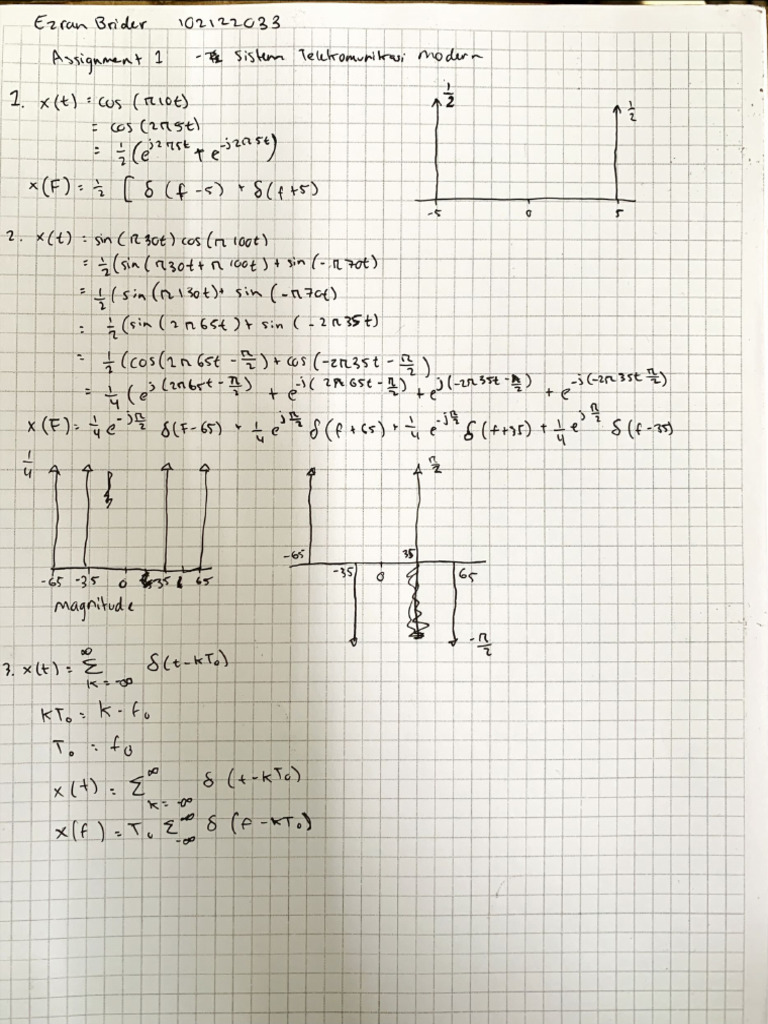 Ezran Brider 102122033
Assignment 1 - Sistem Telekomunikasi Modern
1. x(t) = cos (π10t)
= cos (2π5t)
= 1/2 (e^j2π5t + e^-j2π5t)
x(F) = 1/2 [ δ (f - 5) + δ(f+5)
1/2 1/2
-5 0 5
2. x(t) = sin(π30t) cos(π100t)
= 1/2 (sin(π30t + π100t) + sin(-π70t)
= 1/2 (sin(π130t) + sin(-π70t)
= 1/2 (sin(2π65t) + sin(-2π35t)
= 1/2 (cos(2π65t - π/2) + cos(-2π35t - π/2)
= 1/4 (e^j(2π65t - π/2) + e^-j(2π65t - π/2) + e^j(-2π35t - π/2) + e^-j(-2π35t π/2)
x(F) = 1/4 e^-jπ/2 δ(F-65) + 1/4 e^jπ/2 δ(f+65) + 1/4 e^-jπ/2 δ(f+35) + 1/4 e^jπ/2 δ(f-35)
1/4
-65 -35 0 35 65
magnitude
π/2
-65 -35 0 35 65
-π/2
3. x(t) = Σ^∞_k=-∞ δ(t-kT₀)
kT₀ = k - f₀
T₀ = f₀
x(t) = Σ^∞_k=-∞ δ (t-kT₀)
x(f) = T₀ Σ^∞_-∞ δ (f - kT₀)